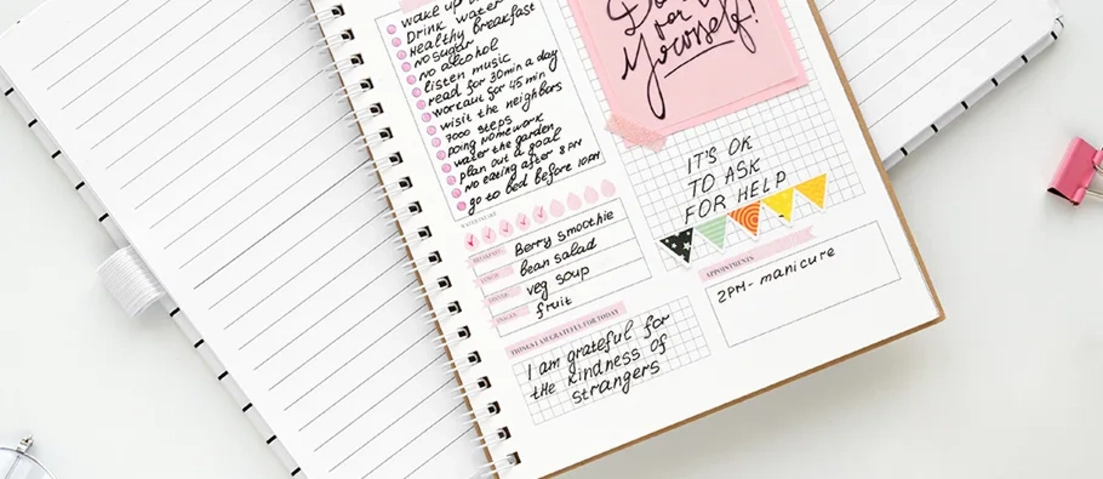 wake up
Drink water
Healthy breakfast
no sugar
no alcohol
listen music
read for 30min a day
workout for 45 min
wisit the neighbors
7000 steps
Doing Homework
water the garden
plan out a goal
No eating after 8 PM
go to bed before 10PM
WATER INTAKE
BREAKFAST: Berry smoothie
LUNCH: bean salad
DINNER: veg soup
SNACKS: fruit
THINGS I AM GRATEFUL FOR TODAY
I am grateful for
the kindness of
strangers
for
Yourself!
IT'S OK
TO ASK
FOR HELP
APPOINTMENTS
2PM- manicure